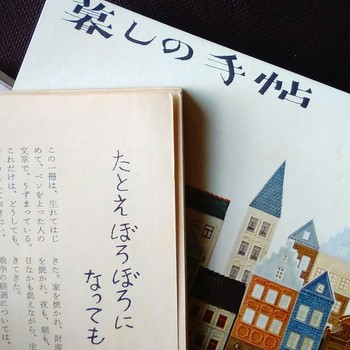 暮しの手帖
たとえぼろぼろに
なっても
この一冊は、生れてはじ
めて、ペンをとった人の
文章で、うずまっている。
これだけは、どうしても、
きた。家を焼かれ、財産
を焼かれ、夜も、朝も、
日なかも飢えながら、生
きてきた。
戦争の経過については、